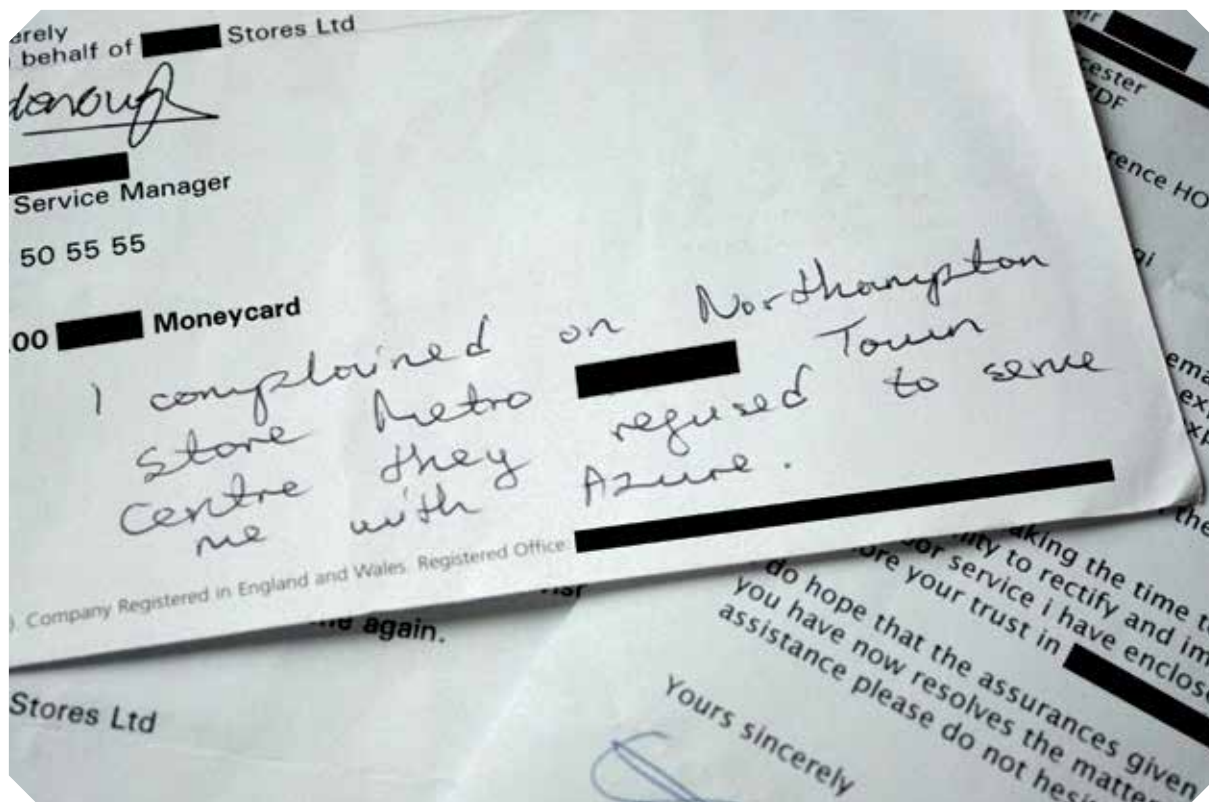 erely
behalf of Stores Ltd
Service Manager
50 55 55
.00 Moneycard
I complained on Northampton
Store Metro Town
Centre they regused to serve
me with Azure.
). Company Registered in England and Wales. Registered Office
again.
Stores Ltd
Mr
cester
7DF
rence HO
the
aking the time to
ity to rectify and im
or service i have enclos
ore your trust in
do hope that the assurances given
you have now resolves the matter
assistance please do not hesi
Yours sincerely